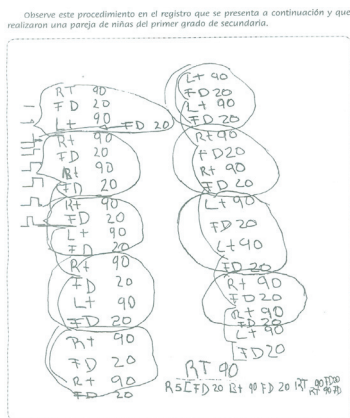 Observe este procedimiento en el registro que se presenta a continuación y que
realizaron una pareja de niñas del primer grado de secundaria.
RT 90
FD 20
Lt 90
FD 20
Rt 90
FD 20
Rt 90
FD 20
Rt 90
FD 20
Lt 90
FD 20
Rt 90
FD 20
Lt 90
FD 20
Rt 90
FD 20
Rt 90
FD 20
Lt 90
FD 20
Lt 90
FD 20
Rt 90
FD 20
Rt 90
FD 20
Lt 90
FD 20
Lt 90
FD 20
Rt 90
FD 20
Rt 90
FD 20
Lt 90
FD 20
RT 90
FD 20 Rt 90 FD 20 RT 90 FD 20
RT 90 FD